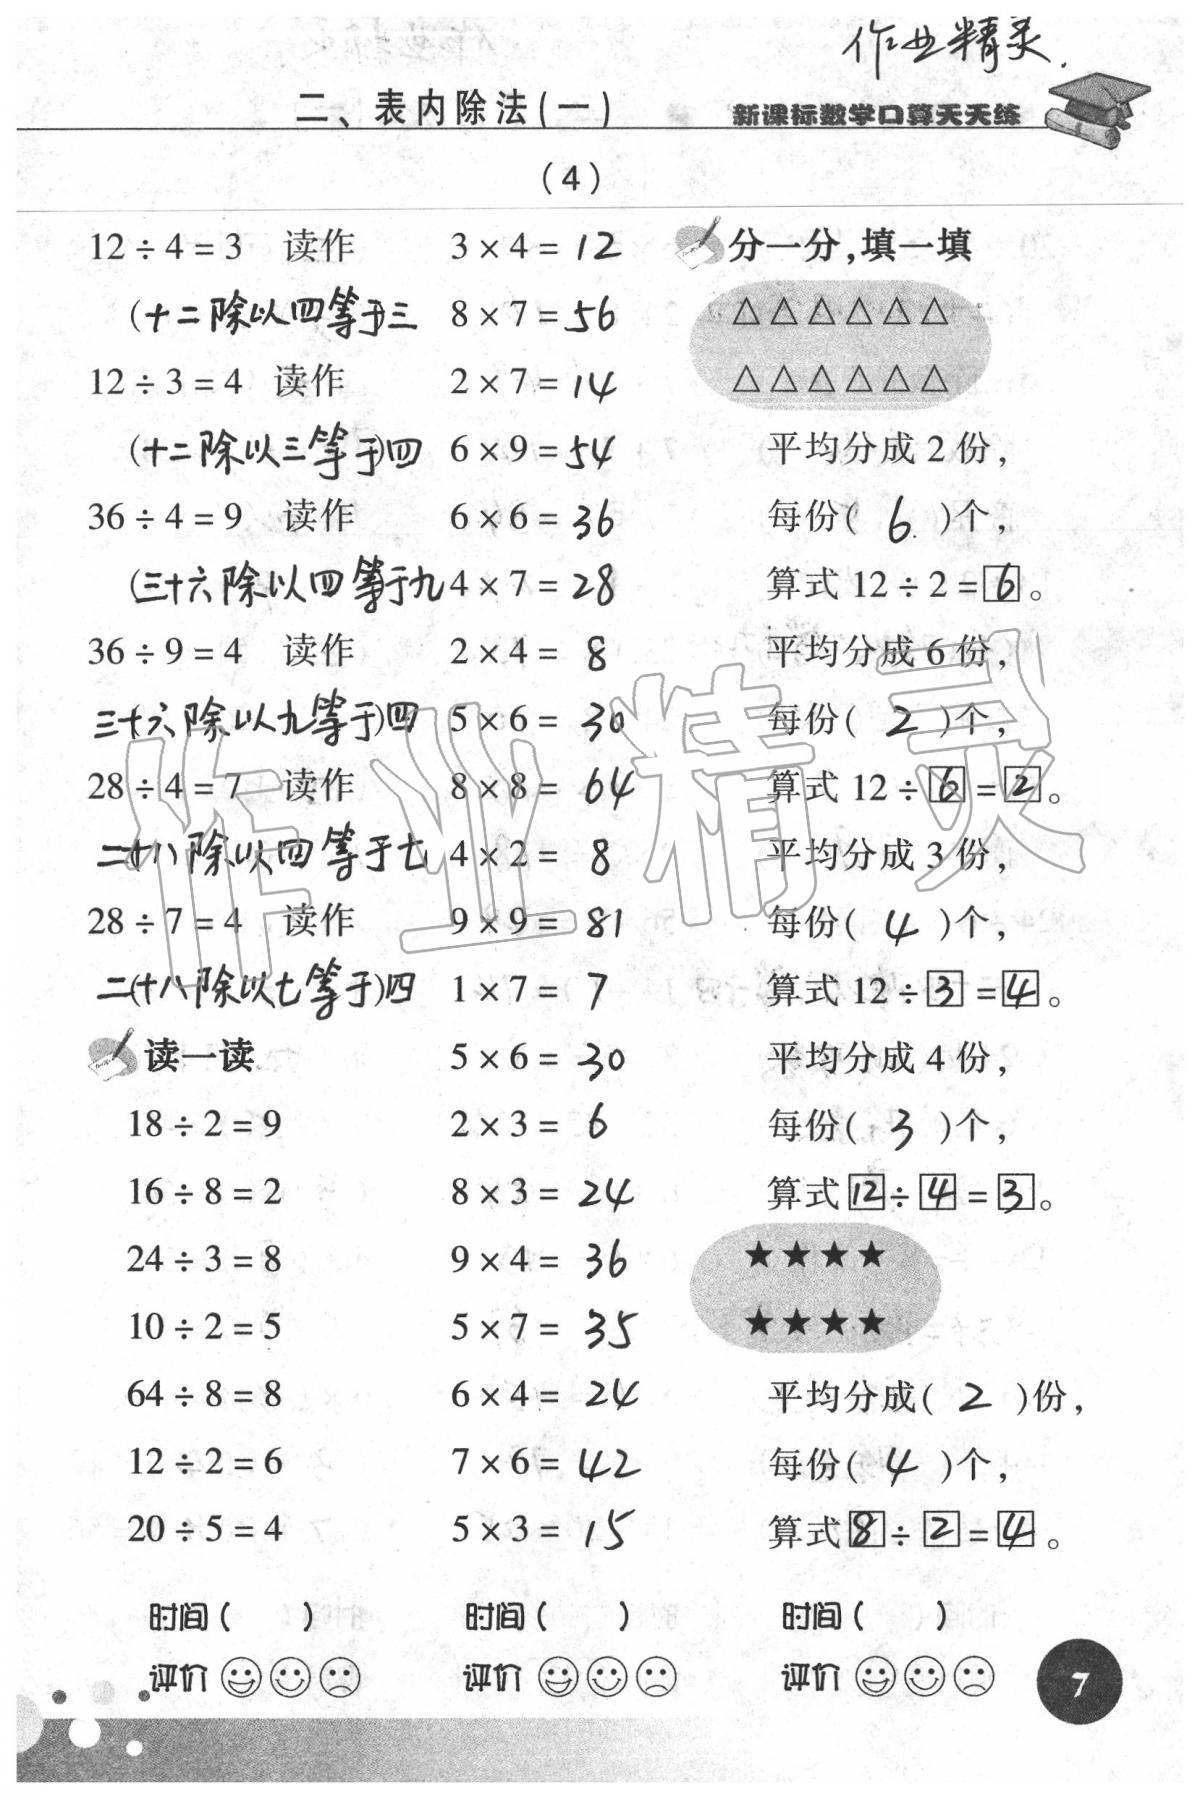 作业精灵.
二、表内除法(一)
新课标数学口算天天练
(4)
12÷4=3 读作
(十二除以四等于)三
12÷3=4 读作
(十二除以三等于)四
36÷4=9 读作
(三十六除以四等于九
36÷9=4 读作
三十六除以九等于)四
28÷4=7 读作
二十八除以四等于七
28÷7=4 读作
二(十八除以七等于)四
读一读
18÷2=9
16÷8=2
24÷3=8
10÷2=5
64÷8=8
12÷2=6
20÷5=4
时间( )
评价
3×4=12
8×7=56
2×7=14
6×9=54
6×6=36
4×7=28
2×4=8
5×6=30
8×8=64
4×2=8
9×9=81
1×7=7
5×6=30
2×3=6
8×3=24
9×4=36
5×7=35
6×4=24
7×6=42
5×3=15
时间( )
评价
分一分,填一填
△△△△△△
△△△△△△
平均分成2份,
每份(6.)个,
算式12÷2=6。
平均分成6份,
每份(2)个,
算式12÷6=2。
平均分成3份,
每份(4)个,
算式12÷3=4。
平均分成4份,
每份(3)个,
算式12÷4=3。
★★★★
★★★★
平均分成(2)份,
每份(4)个,
算式8÷2=4。
时间( )
评价
7
作业精灵